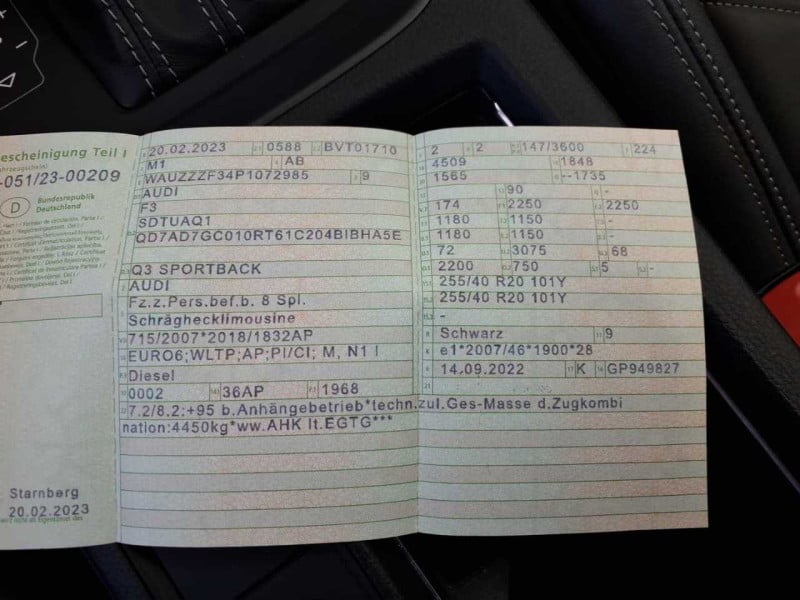 escheinigung Teil I
-051/23-00209
D Bundesrepublik
Deutschland
Starnberg
20.02.2023
20.02.2023 0588 BVT01710
M1 AB
WAUZZZF34P1072985 9
AUDI
F3
SDTUAQ1
QD7AD7GC010RT61C204BIBHA5E
Q3 SPORTBACK
AUDI
Fz.z.Pers.bef.b. 8 Spl.
Schräghecklimousine
715/2007*2018/1832AP
EURO6;WLTP;AP;PI/CI; M, N1 I
Diesel
0002 36AP 1968
7.2/8.2:+95 b.Anhängebetrieb*techn.zul.Ges-Masse d.Zugkombi
nation:4450kg*ww.AHK lt.EGTG***
2 2 147/3600 224
4509 1848
1565 --1735
90 -
174 2250 2250
1180 1150 -
1180 1150 -
72 3075 68
2200 750 5 -
255/40 R20 101Y
255/40 R20 101Y
-
Schwarz 9
e1*2007/46*1900*28
14.09.2022 K GP949827